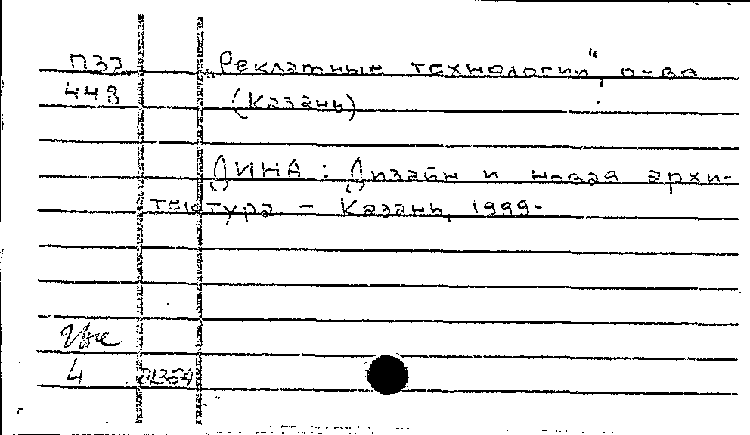 П33
448
„Рекламные технологии“, о-во
(Казань)
ДИНА: Дизайн и новая архи-
тектура – Казань, 1999-
4